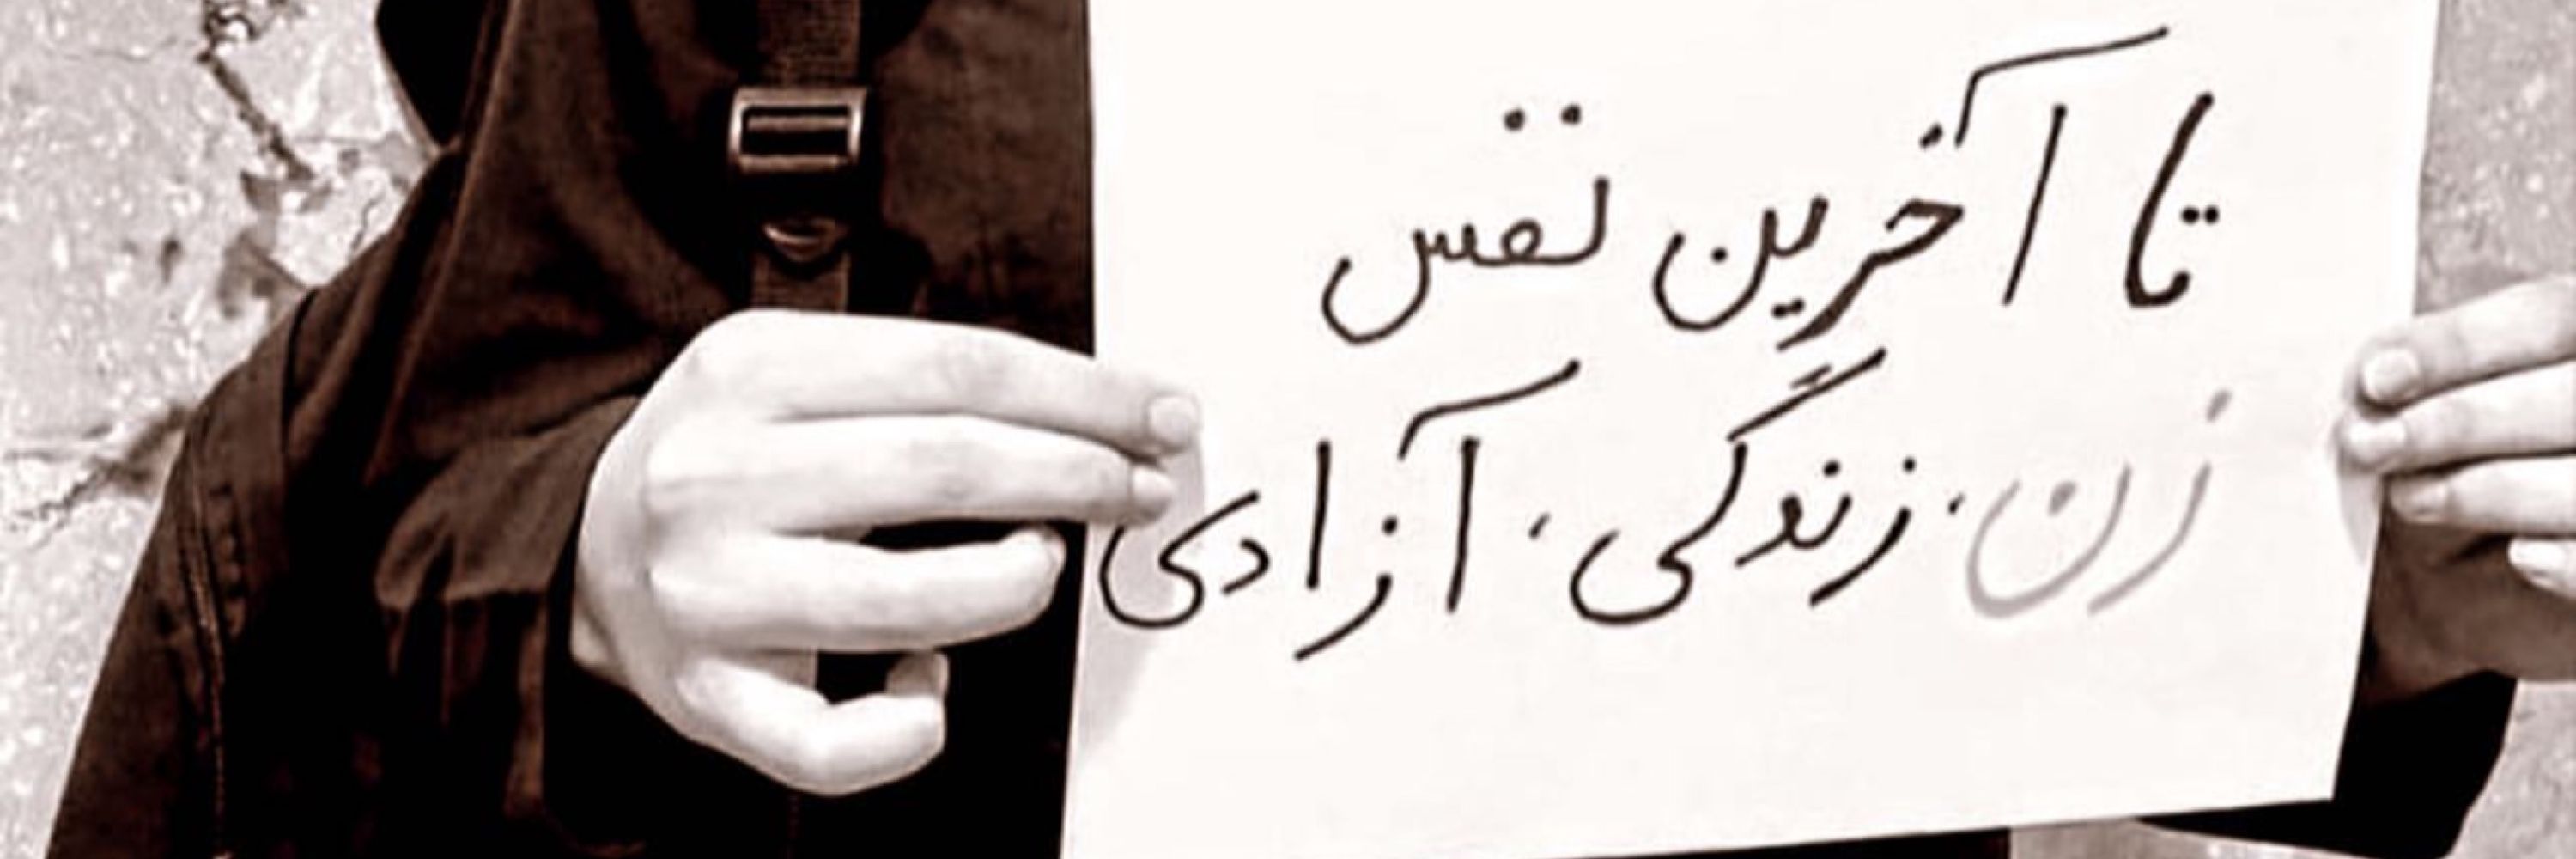 تا آخرین نفس
زن، زندگی، آزادی